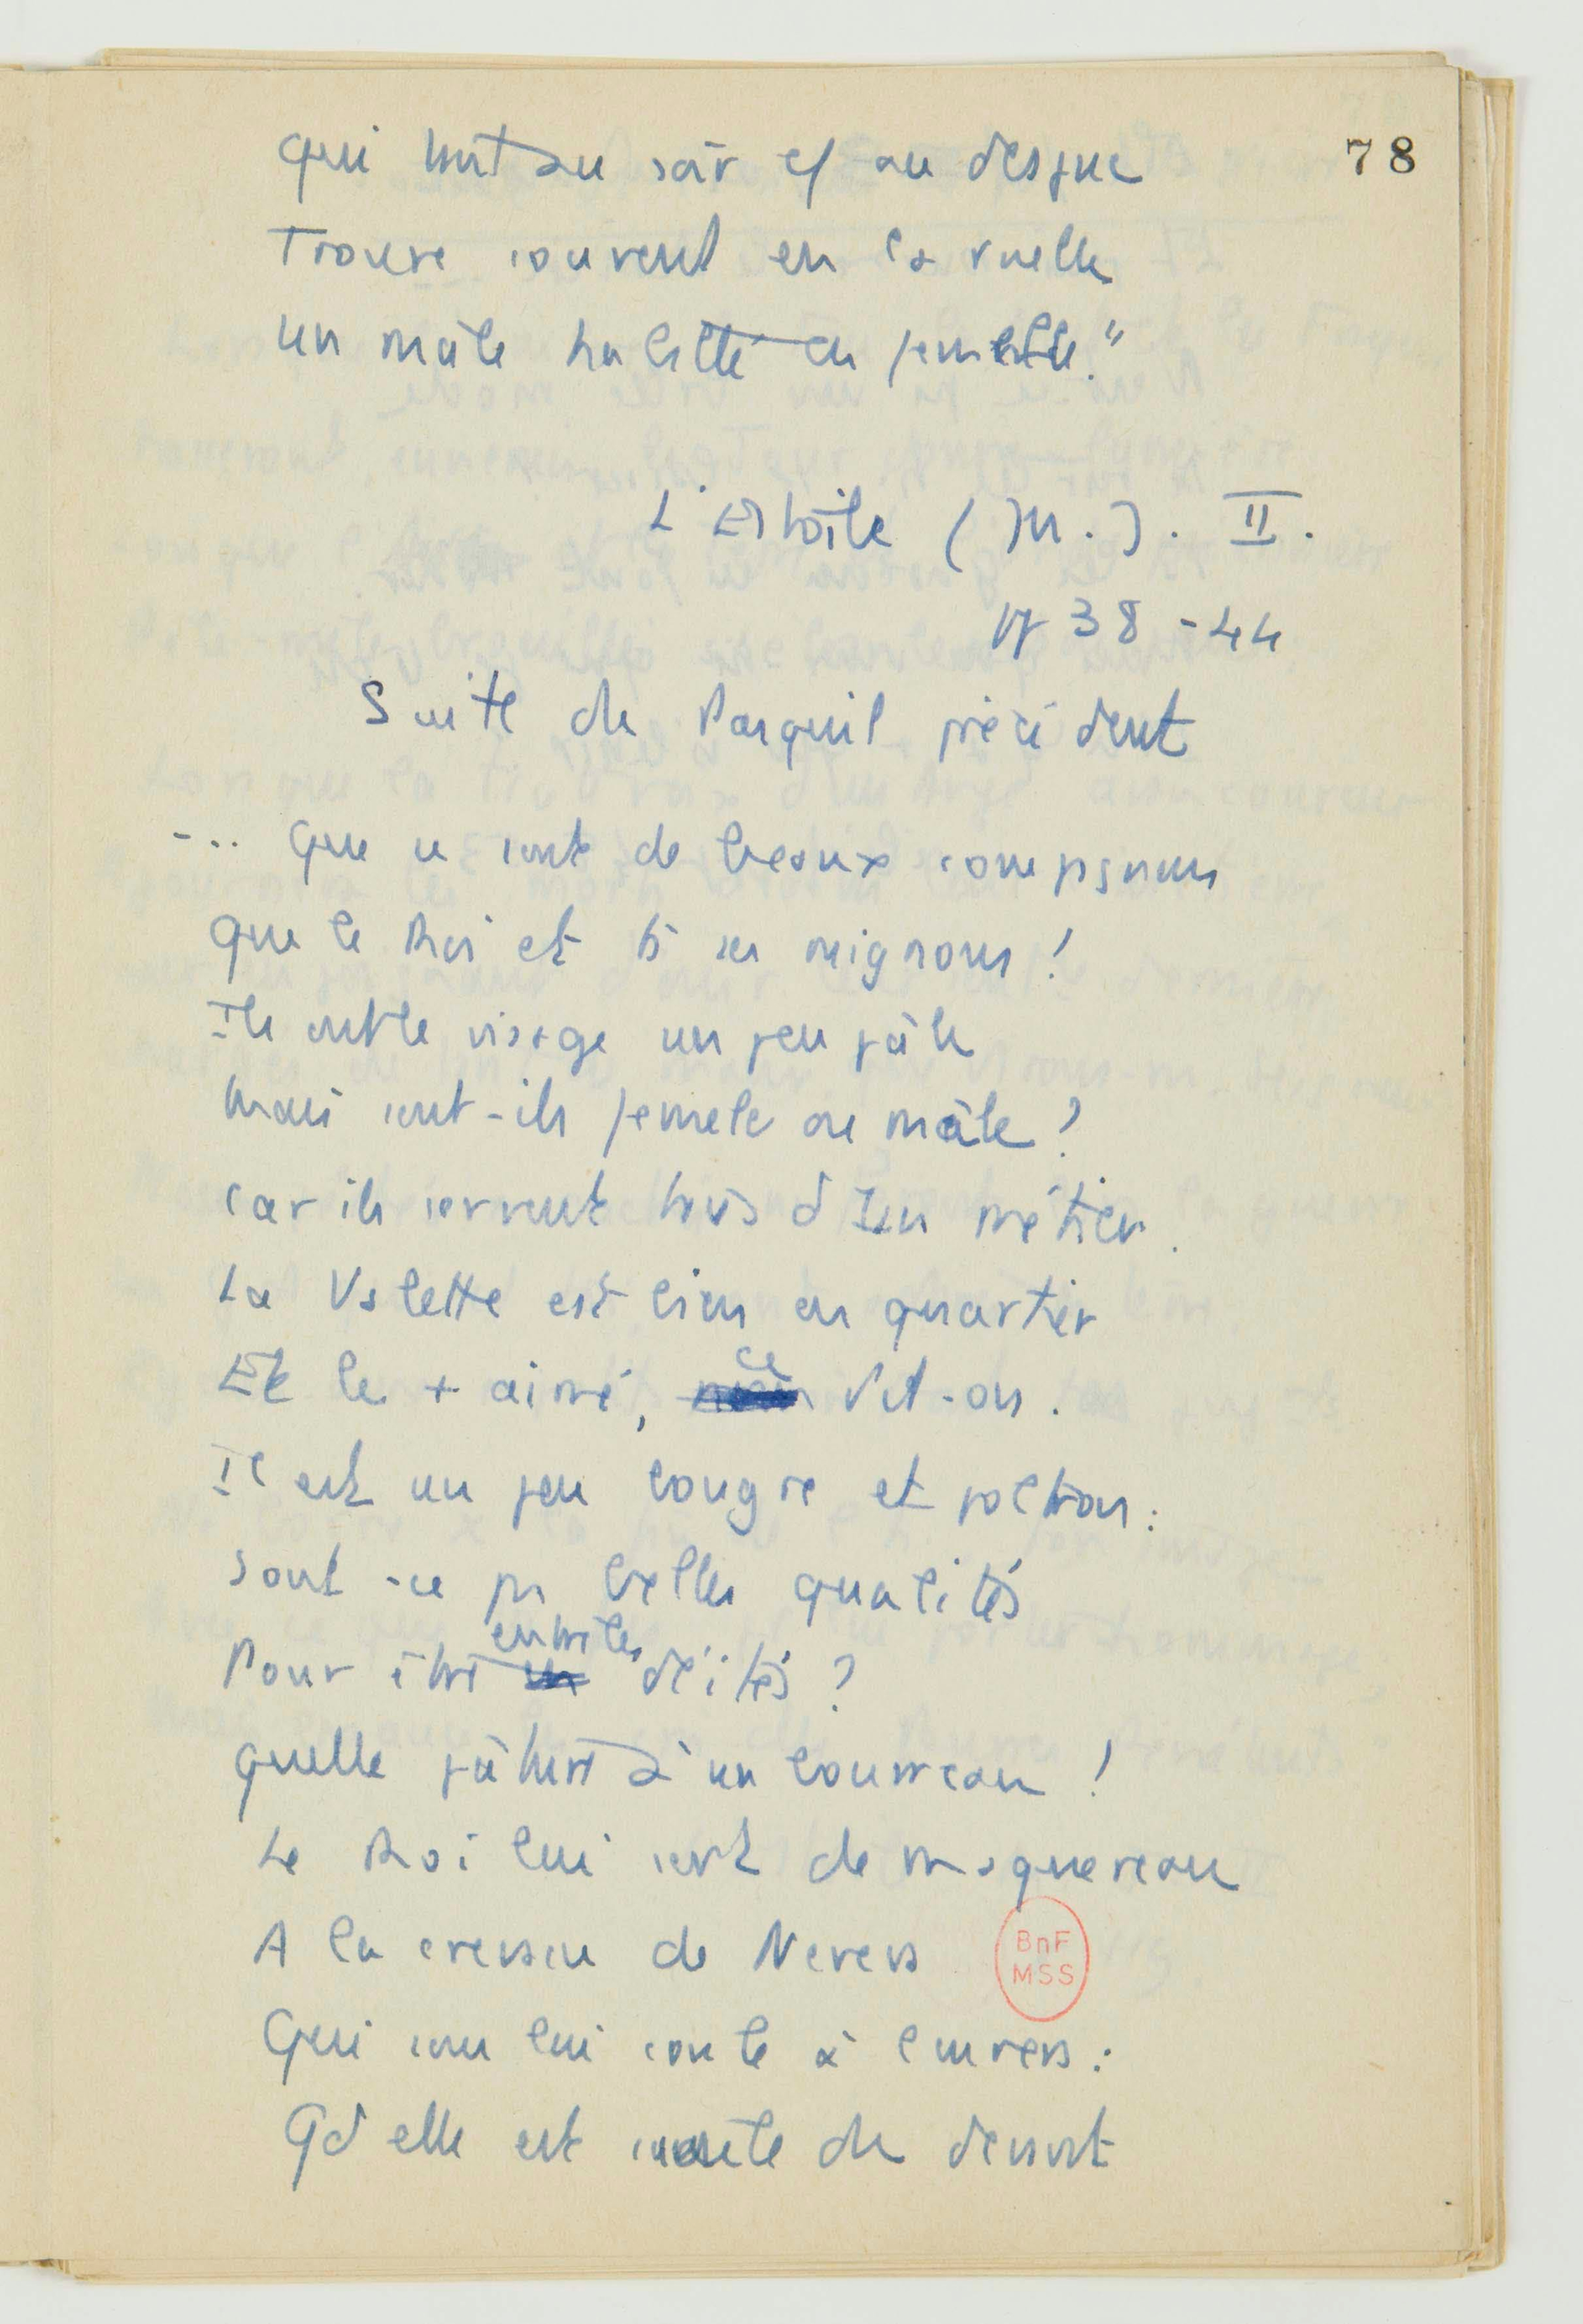 78
Qui tout au soir et au desjuc
Trouve souvent en sa ruelle
Un mâle habillé en femelle."
L'Estoile (M.). II.
pp 38-44
Suite du Pasquil précédent
... Que ce sont de beaux compagnons
que le Roi et ts ses mignons !
Ils ont le visage un peu pâle
Mais sont-ils femelle ou mâle ?
Car ils servent tous d'un métier.
La Valette est bien en quartier
Et le + aimé, ce dit-on.
Il est un peu bougre et poltron :
Sont-ce pas belles qualités
Pour être entre les déités ?
Quelle pâture à un bourreau !
Le Roi lui sert de maquereau
A la creusée de Nevers
Qui son lui conte à l'envers :
Qd elle est soûle du devant
BnF
MSS